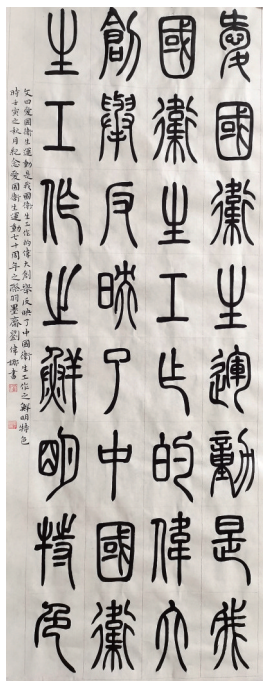 愛國衛生運動是我
國衛生工作的偉大
創舉反映了中國衛
生工作之鮮明特色
文曰愛國衛生運動是我國衛生工作的偉大創舉反映了中國衛生工作之鮮明特色
時壬寅之秋月紀念愛國衛生運動七十周年之際羽墨齋劉偉書